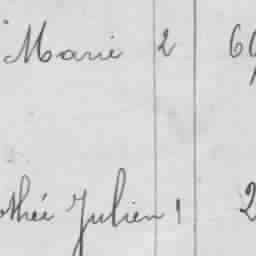 Marie 2 6
othée Julien 1 2